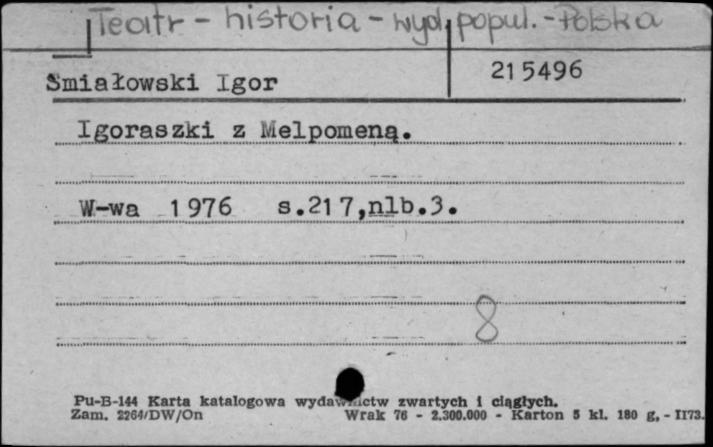 Teatr - historia - wyd. popul. - Polska
Śmiałowski Igor 215496
Igoraszki z Melpomeną.
W-wa 1976 s.217,nlb.3.
8
Pu-B-144 Karta katalogowa wydawnictw zwartych i ciągłych.
Zam. 2264/DW/On Wrak 76 - 2.300.000 - Karton 5 kl. 180 g. - II73.